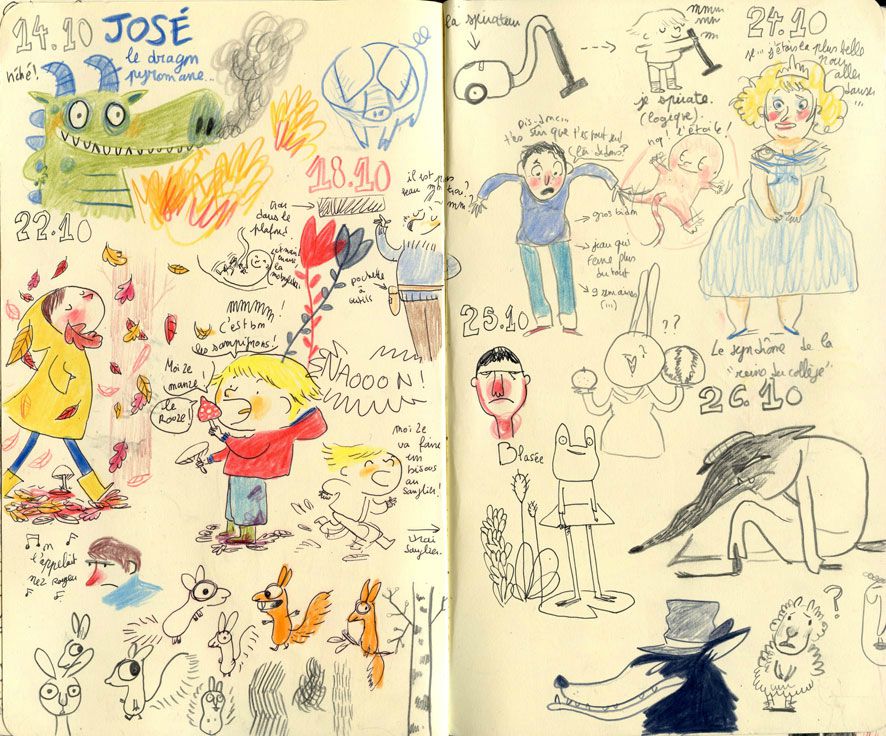 14.10 JOSÉ
le dragon
pyromane...
hihi!
22.10
18.10
dans le
plafond!
pochette
à
outils
mmmm!
c'est bon
les sampignons!
Moi ze
manze!
le
rooze
NAOOON!
moi ze
va faire
un
bisous
au
sanglier!
vrai
sanglier.
on
l'appelait
nez rouge
la spirateur
mmm
mm
m
je spirate.
(logique).
24.10
je... j'étais la plus belle
nous
allez
danser
...
Dis-donc...
t'es sûr que t'es tout seul
là dedans?
hop! l'étoile!
gros bidon
peau qui
ferme plus
du tout
9 semaines
(...)
25.10
??
?
Le syndrôme de la
"reine du collège"
26.10
Blasée
?